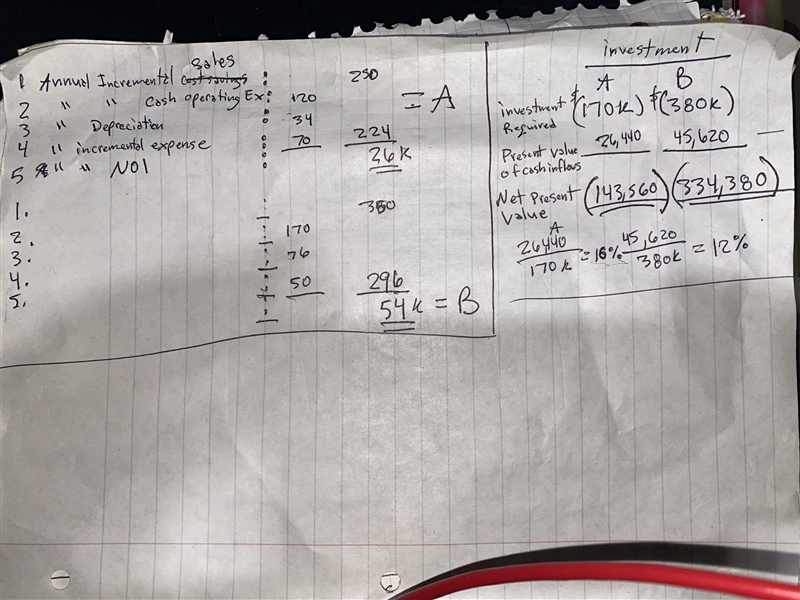 Sales
1 Annual Incremental cost savings 250
2 " " Cash operating Ex. 120
3 " Depreciation 34
4 " incremental expense 70 224
5 " " NOI 26 K
= A
1. 350
2. 170
3. 76
4. 50 296
5. 54 K = B
investment
A B
investment Required $(170K) $(380K)
Present Value of cash inflows 26,440 45,620
Net Present Value (143,560) (334,380)
A
26,440 / 170K = 16% 45,620 / 380K = 12%